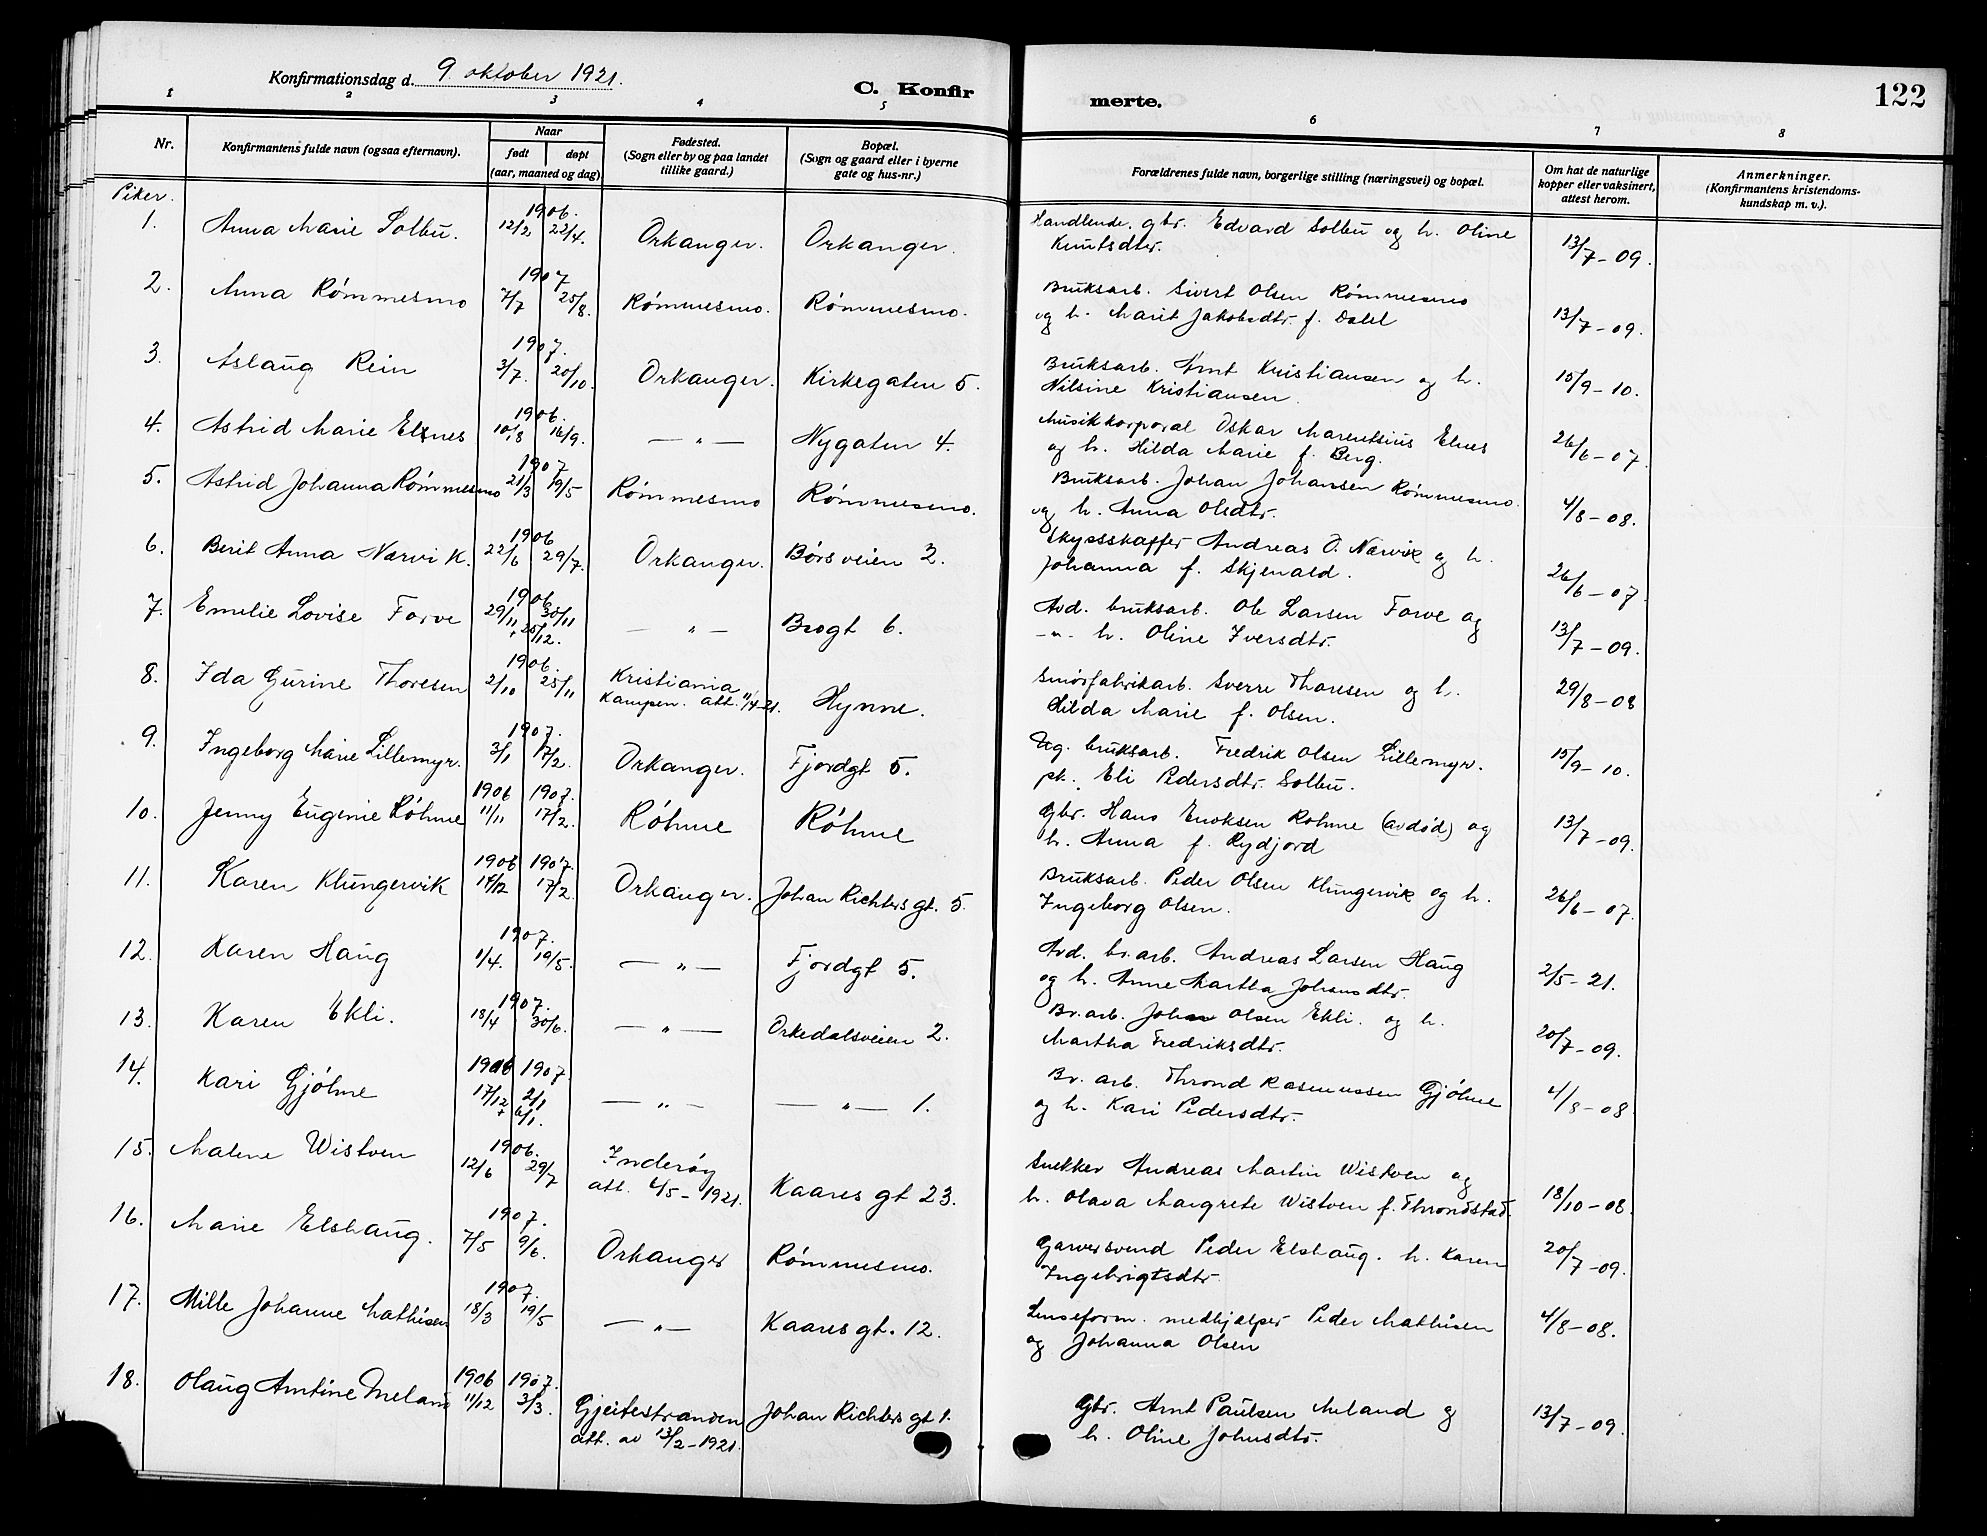 Konfirmationsdag d. 9. oktober 1921.
C. Konfir
merte.
122
1 2 3 4 5 6 7 8
Nr.
Konfirmantens fulde navn (ogsaa efternavn).
Naar
født døpt
(aar, maaned og dag)
Fødested.
(Sogn eller by og paa landet
tillike gaard.)
Bopæl.
(Sogn og gaard eller i byerne
gate og hus-nr.)
Forældrenes fulde navn, borgerlige stilling (næringsvei) og bopæl.
Om hat de naturlige
kopper eller vaksinert,
attest herom.
Anmerkninger.
(Konfirmantens kristendoms-
kundskap m. v.).
Piker.
1. Anna Marie Solbu. 1906. 12/2 22/4. Orkanger. Orkanger. Handlende, gbr. Edvard Solbu og h. Oline
Knutsdtr. 13/7-09.
2. Anna Rømmesmo 1907 7/7 25/8. Rømmesmo. Rømmesmo. Bruksarb. Sivert Olsen Rømmesmo
og h. Marit Jakobsdtr. f. Dalel 13/7-09.
3. Aslaug Rein 1907. 3/7. 20/10. Orkanger. Kirkegaten 5. Bruksarb. Arnt Kristiansen og h.
Nilsine Kristiansen. 15/9-10.
4. Astrid Marie Elsnes 1906. 10/8 16/9. — " — Nygaten 4. Musikkorporal Oskar Marentsius Elnes
og h. Hilda Marie f. Berg. 26/6-07.
5. Astrid Johanna Rømmesmo 1907 21/3 19/5 Rømmesmo Rømmesmo. Bruksarb. Johan Johansen Rømmesmo
og h. Anna Olsdtr. 4/8-08.
6. Berit Anna Nærvik. 1906 22/6 29/7. Orkanger. Børsveien 2. Skysskaffer Andreas O. Nærvik og h.
Johanna f. Skjenald. 26/6-07.
7. Emelie Lovise Forve 1906 29/11 30/11 + 25/12. — " — Brogt 6. Avd. bruksarb. Ole Larsen Forve og
-"- h. Oline Iversdtr. 13/7-09.
8. Ida Gurine Thoresen 1906. 2/10 25/11 Kristiania
Kampen. att. 11/4-21. Hynne. Smørfabrikarb. Sverre Thoresen og h.
Hilda Marie f. Olsen. 29/8-08
9. Ingeborg Marie Lillemyr. 1907. 3/1 17/2. Orkanger. Fjordgt 5. Ug. bruksarb. Fredrik Olsen Lillemyr.
pk. Eli Pedersdtr. Solbu. 15/9-10.
10. Jenny Eugenie Røhme 1906 1907. 11/11 17/2. Røhme Røhme Gbr. Hans Enoksen Rohme (avdød) og
h. Anna f. Rydjord 13/7-09.
11. Karen Klungervik 1906 1907. 14/12 17/2. Orkanger. Johan Richters gt. 5. Bruksarb. Peder Olsen Klungervik og h.
Ingeborg Olsen. 26/6-07.
12. Karen Haug 1907. 1/4. 19/5. — " — Fjordgt 5. Avd. br.arb. Andreas Larsen Haug
og h. Anne Martha Johansdtr. 2/5-21.
13. Karen Ekli. 1907. 18/4 30/6. — " — Orkedalsveien 2. Br.arb. Johan Olsen Ekli. og h.
Martha Fredriksdtr. 20/7-09.
14. Kari Gjølme 1906 1907. 17/12 2/1 + 6/1. — " — — " — 1. Br. arb. Thrond Rasmussen Gjølme
og h. Kari Pedersdtr. 4/8-08
15. Malene Wistven 1906. 12/6 29/7 Inderøy
att. 4/5-1921. Kaares gt 23. Snekker Andreas Martin Wistven og
h. Olava Margrete Wistven f. Throndstad. 18/10-08.
16. Marie Elshaug. 1907. 7/5 9/6. Orkanger Rømmesmo. Garversvend Peder Elshaug. h. Karen
Ingebrigtsdtr. 20/7-09.
17. Mille Johanne Mathisen 1907. 18/3 19/5 — " — Kaares gt. 12. Lenseform. medhjælper Peder Mathisen
og Johanna Olsen 4/8-08.
18. Olaug Arntine Meland 1906 1907. 11/12 3/3. Gjeitestranden
att. av 13/2-1921. Johan Richters gt 1. Gbr. Arnt Paulsen Meland og
h. Oline Johnsdtr. 13/7-09.